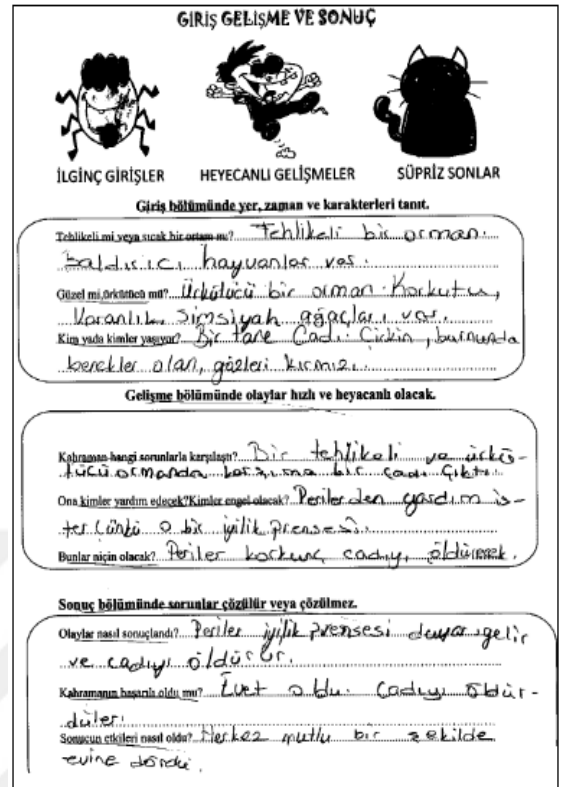 GİRİŞ GELİŞME VE SONUÇ
İLGİNÇ GİRİŞLER HEYECANLI GELİŞMELER SÜPRİZ SONLAR
Giriş bölümünde yer, zaman ve karakterleri tanıt.
Tehlikeli mi veya sıcak bir ortam mı? Tehlikeli bir orman.
Saldırıcı hayvanlar var.
Güzel mi,ürkütücü mü? Ürkütücü bir orman. Korkutu,
Karanlık, simsiyah ağaçları var.
Kim yada kimler yaşıyor? Bir tane Cadı. Çirkin, burnunda
benekler olan, gözleri kırmızı.
Gelişme bölümünde olaylar hızlı ve heyecanlı olacak.
Kahraman hangi sorunlarla karşılaştı? Bir tehlikeli ve ürkü-
tücü ormanda karşıma bir cadı çıktı.
Ona kimler yardım edecek?Kimler engel olacak? Perilerden yardım is-
ter çünkü o bir iyilik prensesi.
Bunlar niçin olacak? Periler korkunç cadıyı öldürerek.
Sonuç bölümünde sorunlar çözülür veya çözülmez.
Olaylar nasıl sonuçlandı? Periler iyilik prensesi duyar gelir
ve cadıyı öldürür.
Kahramanın başarılı oldu mu? Evet oldu. Cadıyı öldür-
düler.
Sonucun etkileri nasıl oldu? Herkez mutlu bir şekilde
evine döndü.